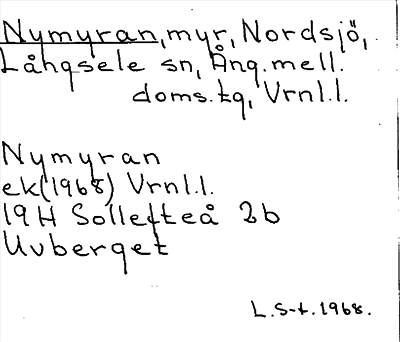 Nymyran, myr, Nordsjö,
Långsele sn, Ång. mell.
doms. tg, Vrnl.l.
Nymyran
ek (1968) Vrnl.l.
19H Sollefteå 2b
Uvberget
L. S-t. 1968.